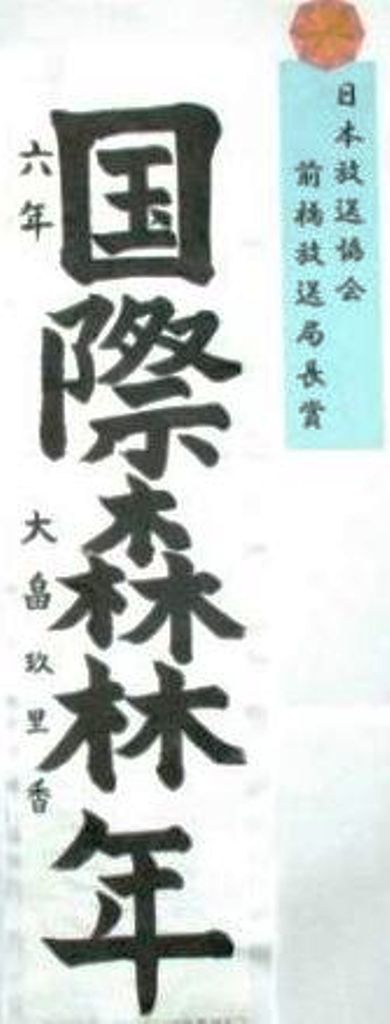 日本放送協会
前橋放送局長賞
国際森林年
六年
大畠玖里香